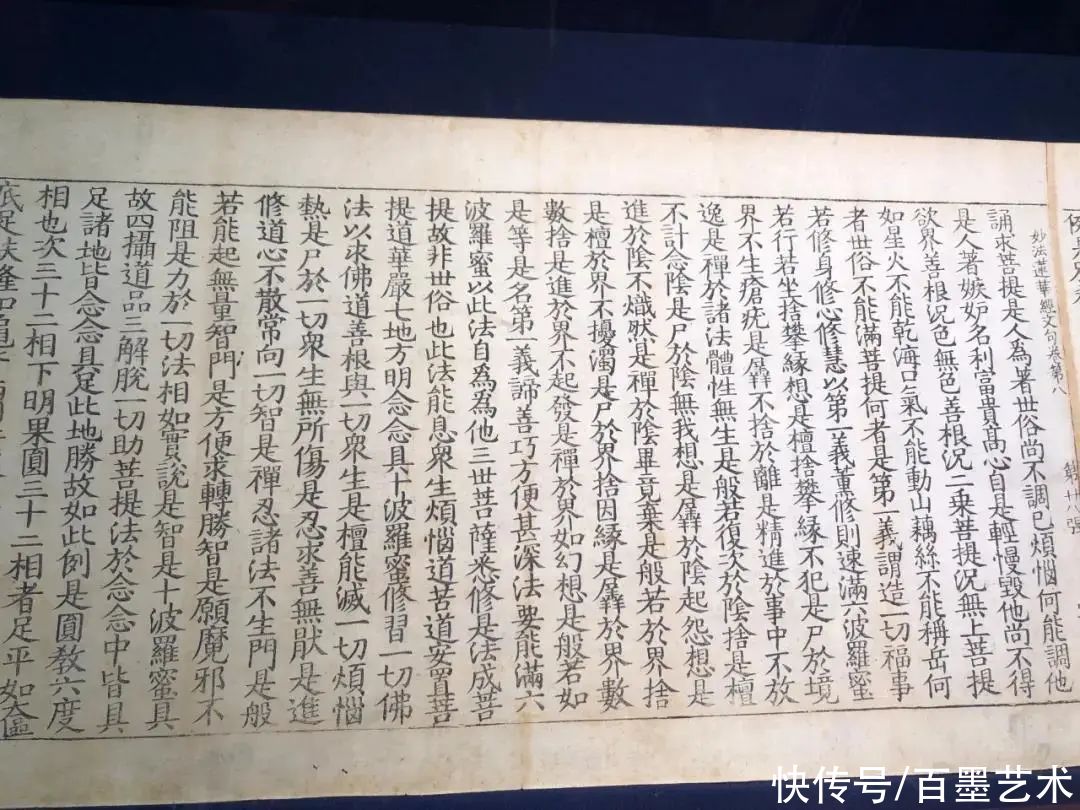 妙法蓮華經文句卷第八 第廿八張
誦求菩提是人為著世俗尚不調己煩惱何能調他
是人著嫉妒名利富貴髙心自是輕慢毀他尚不得
欲界善根況色無色善根況二乗菩提況無上菩提
如星火不能乾海口氣不能動山藕絲不能稱岳何
者世俗不能滿菩提何者是第一義謂造一切福事
若修身修心修慧以第一義薰修則速滿六波羅蜜
若行若坐捨攀緣想是檀捨攀緣不犯是尸於境
界不生瘡疣是羼不捨於離是精進於事中不放
逸是禪於諸法體性無生是般若復次於陰捨是檀
不計念陰是尸於陰無我想是羼於陰起怨想是
進於陰不熾然是禪於陰畢竟棄是般若於界捨
是檀於界不擾濁是尸於界捨因緣是羼於界數
數捨是進於界不起發是禪於界如幻想是般若如
是等是名第一義諦善巧方便甚深法要能滿六
波羅蜜以此法自為為他三世菩薩悉修是法成菩
提故非世俗也此法能息衆生煩惱道苦道安置菩
提道華嚴七地方明念念具十波羅蜜修習一切佛
法以求佛道善根與一切衆生是檀能滅一切煩惱
熱是尸於一切衆生無所傷是忍求善無猒是進
修道心不散常向一切智是禪忍諸法不生門是般
若能起無量智門是方便求轉勝智是願魔邪不
能阻是力於一切法相如實說是智是十波羅蜜具
故四攝道品三解脫一切助菩提法於念念中皆具
足諸地皆念念具足此地勝故如此例是圓教六度
相也次三十二相下明果圓三十二相者足平如奩
底足趺隆
快传号/百墨艺术